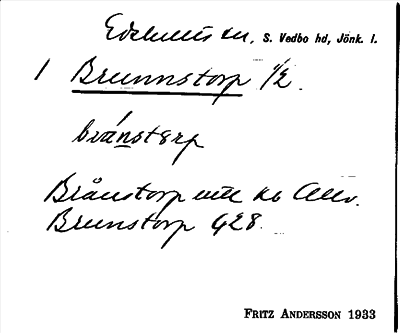 Edshults sn, S. Vedbo hd, Jönk. l.
1 Brunnstorp 1/2
bránstorp
Brånstorp utt kb Allv.
Brunstorp G28
FRITZ ANDERSSON 1933